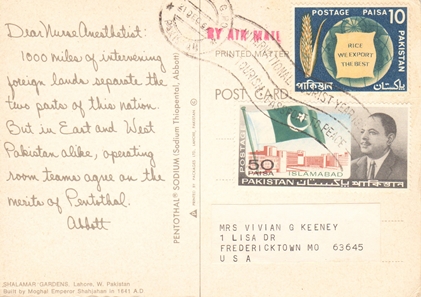 Dear Nurse Anesthetist:
1000 miles of intervening
foreign lands separate the
two parts of this nation.
But in East and West
Pakistan alike, operating
room teams agree on the
merits of Pentothal.
Abbott
SHALAMAR GARDENS, Lahore, W. Pakistan
Built by Moghal Emperor Shahjehan in 1641 A.D.
PENTOTHAL® SODIUM (Sodium Thiopental, Abbott)
BY AIR MAIL
PRINTED MATTER
POST CARD
POSTAGE PAISA 10
RICE
WE EXPORT
THE BEST
PAKISTAN
পাকিস্তান پاکستان
POSTAGE
50
PAISA
ISLAMABAD
PAKISTAN پاکستان পাকিস্তান
MRS VIVIAN G KEENEY
1 LISA DR
FREDERICKTOWN MO 63645
U S A